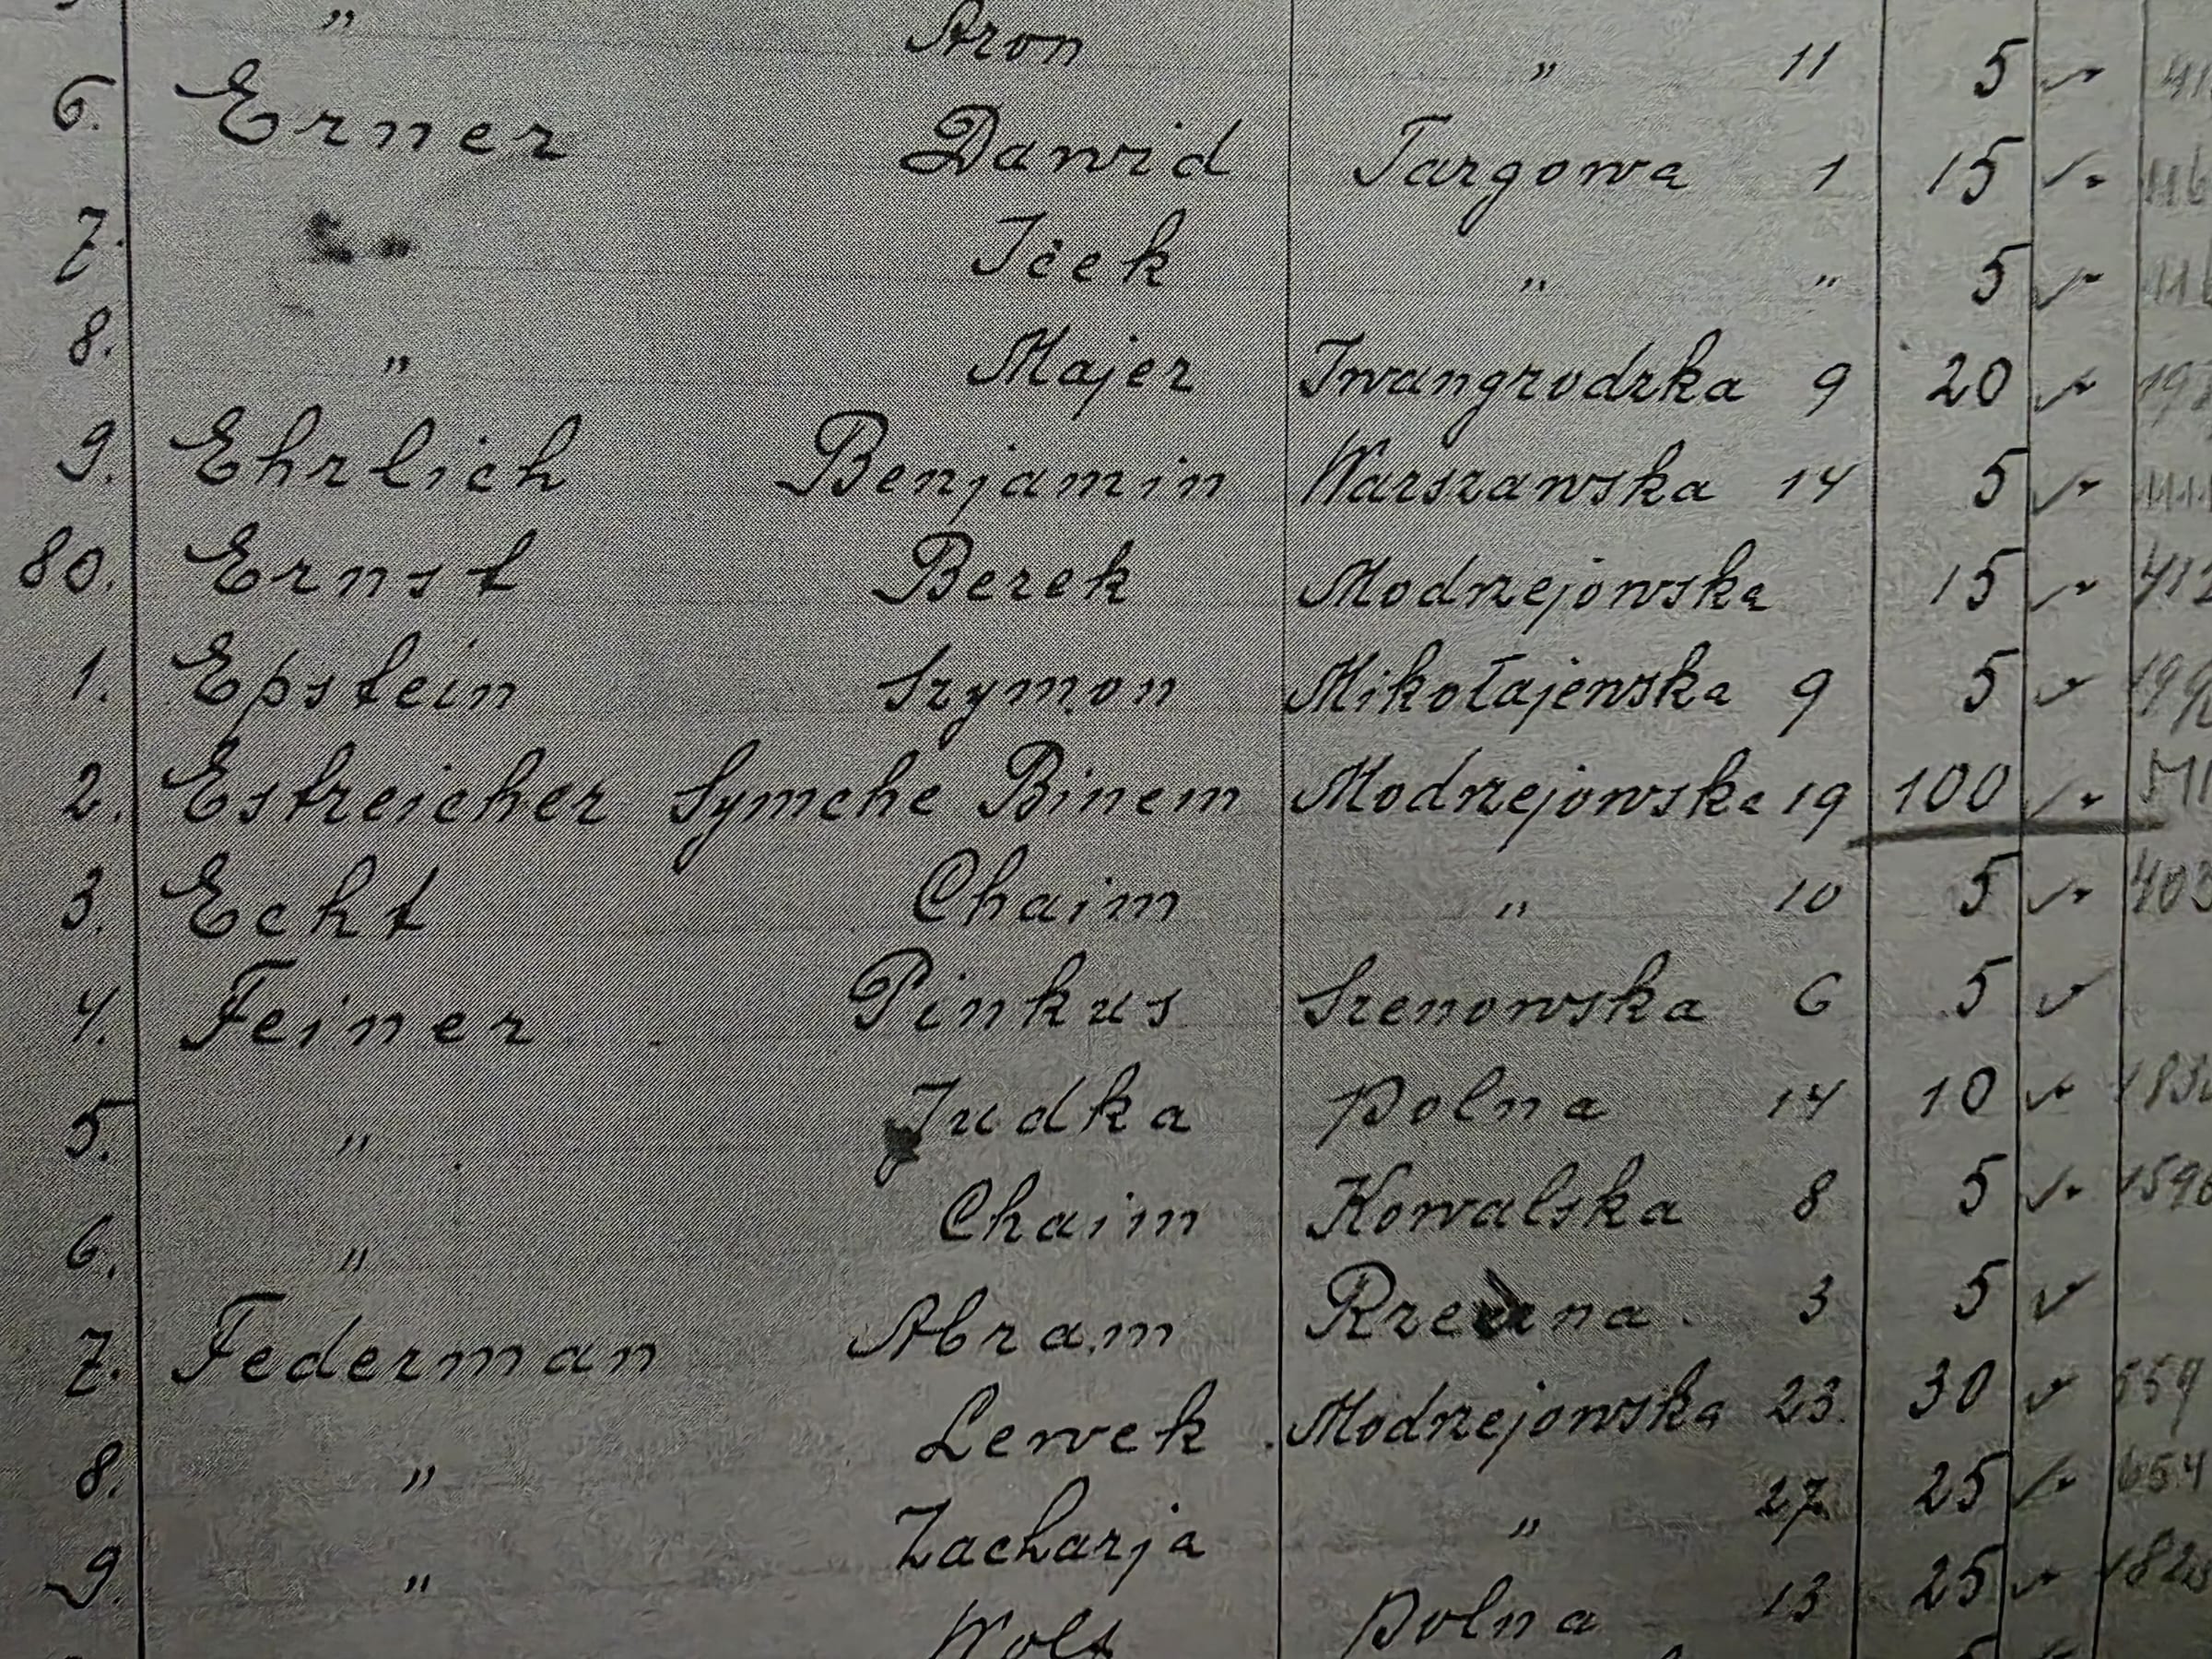 " Aron " 11 5
6. Erner Dawid Targowa 1 15 116
7. " Icek " " 5
8. " Majer Iwangrodzka 9 20
9. Ehrlich Benjamin Warszawska 14 5
80. Ernst Berek Modrzejowska 15
1. Epstein Szymon Mikołajewska 9 5
2. Estreicher Symche Binem Modrzejowska 19 100
3. Echt Chaim " 10 5 403
4. Feiner Pinkus Szenowska 6 5
5. " Judka Polna 14 10
6. " Chaim Kowalska 8 5
7. Federman Abram 3 5
8. " Lewek Modrzejowska 23 30 559
9. " Zacharja " 27 25 654
Wolf Polna 13 25